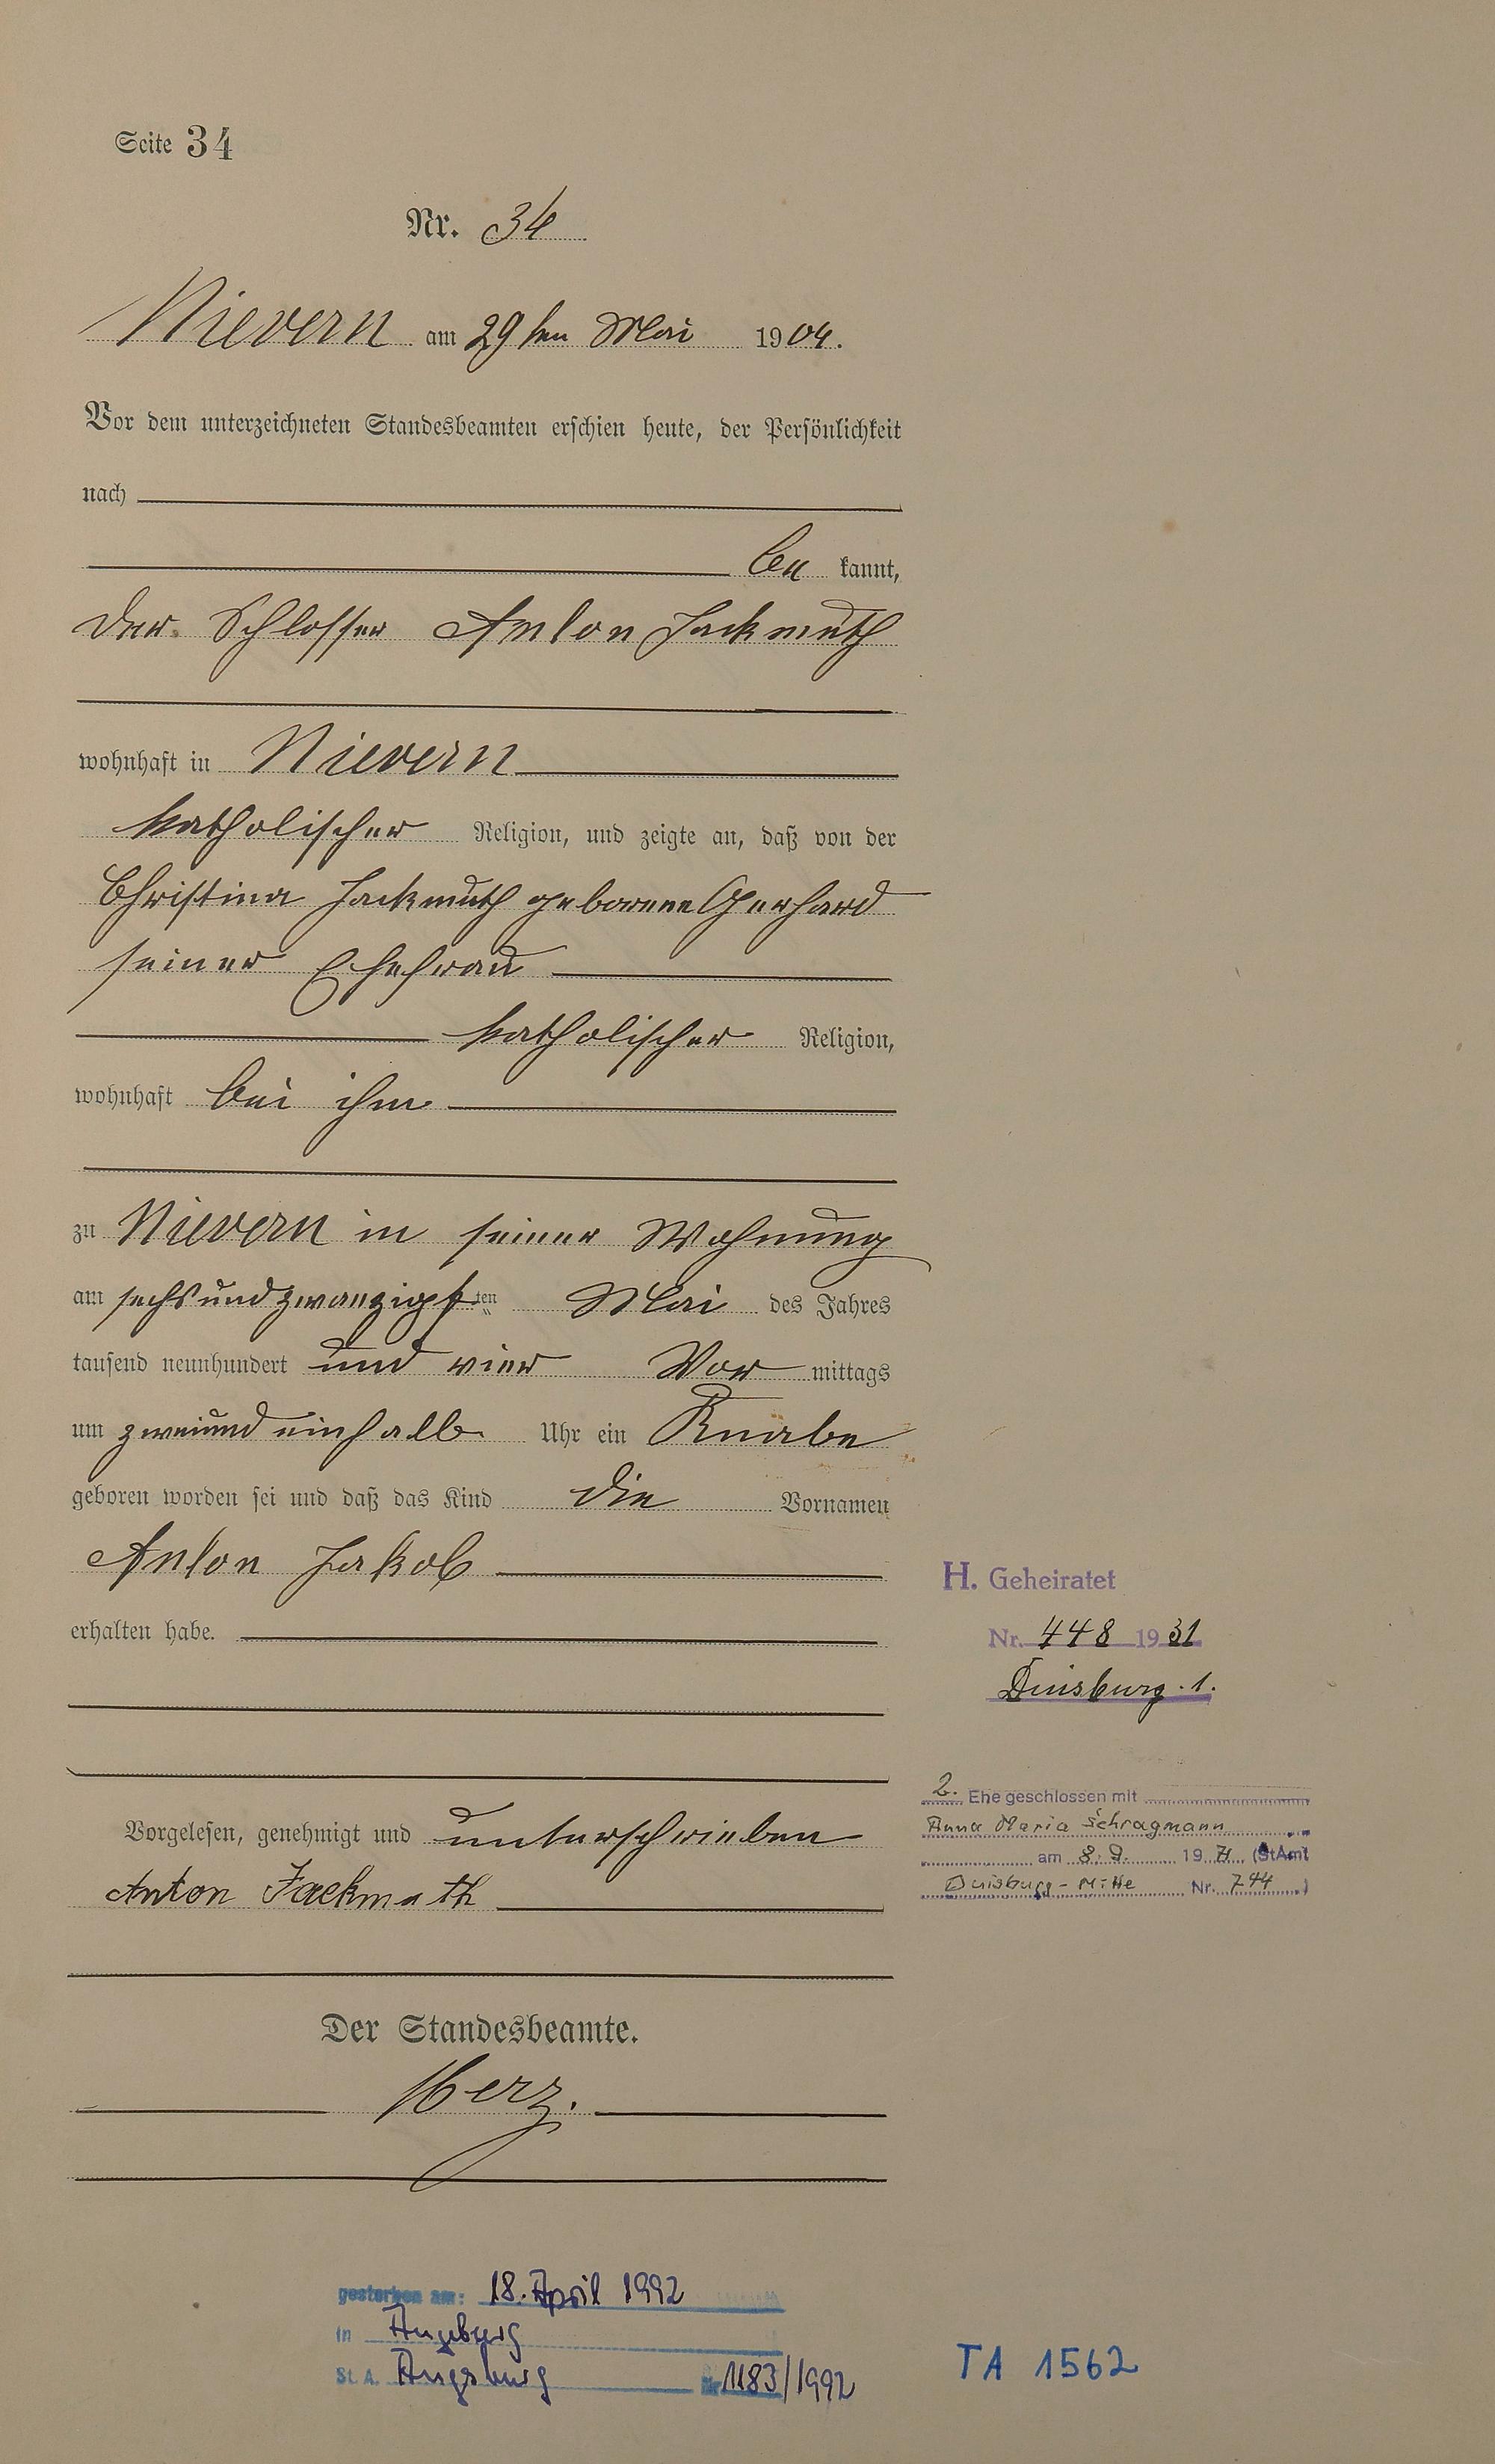 Seite 34
Nr. 34
Nievern am 29ten Mai 1904.
Vor dem unterzeichneten Standesbeamten erschien heute, der Persönlichkeit
nach
be kannt,
der Schlosser Anton Jackmuth
wohnhaft in Nievern
katholischer Religion, und zeigte an, daß von der
Christina Jackmuth geborene Gerhard
seiner Ehefrau
katholischer Religion,
wohnhaft bei ihm
zu Nievern in seiner Wohnung
am sechsundzwanzigsten Mai des Jahres
tausend neunhundert und vier Vor mittags
um zweiundeinhalb Uhr ein Knabe
geboren worden sei und daß das Kind die Vornamen
Anton Jakob
erhalten habe.
Vorgelesen, genehmigt und unterschrieben
Anton Jackmuth
Der Standesbeamte.
Herz.
H. Geheiratet
Nr. 448 1931
Duisburg. 1.
2. Ehe geschlossen mit
Anna Maria Schragmann
am 8. 9. 1971 (StAmt
Duisburg-Mitte Nr. 744)
gestorben am: 18. April 1992
in Augsburg
St. A. Augsburg Nr. 1183/1992
TA 1562